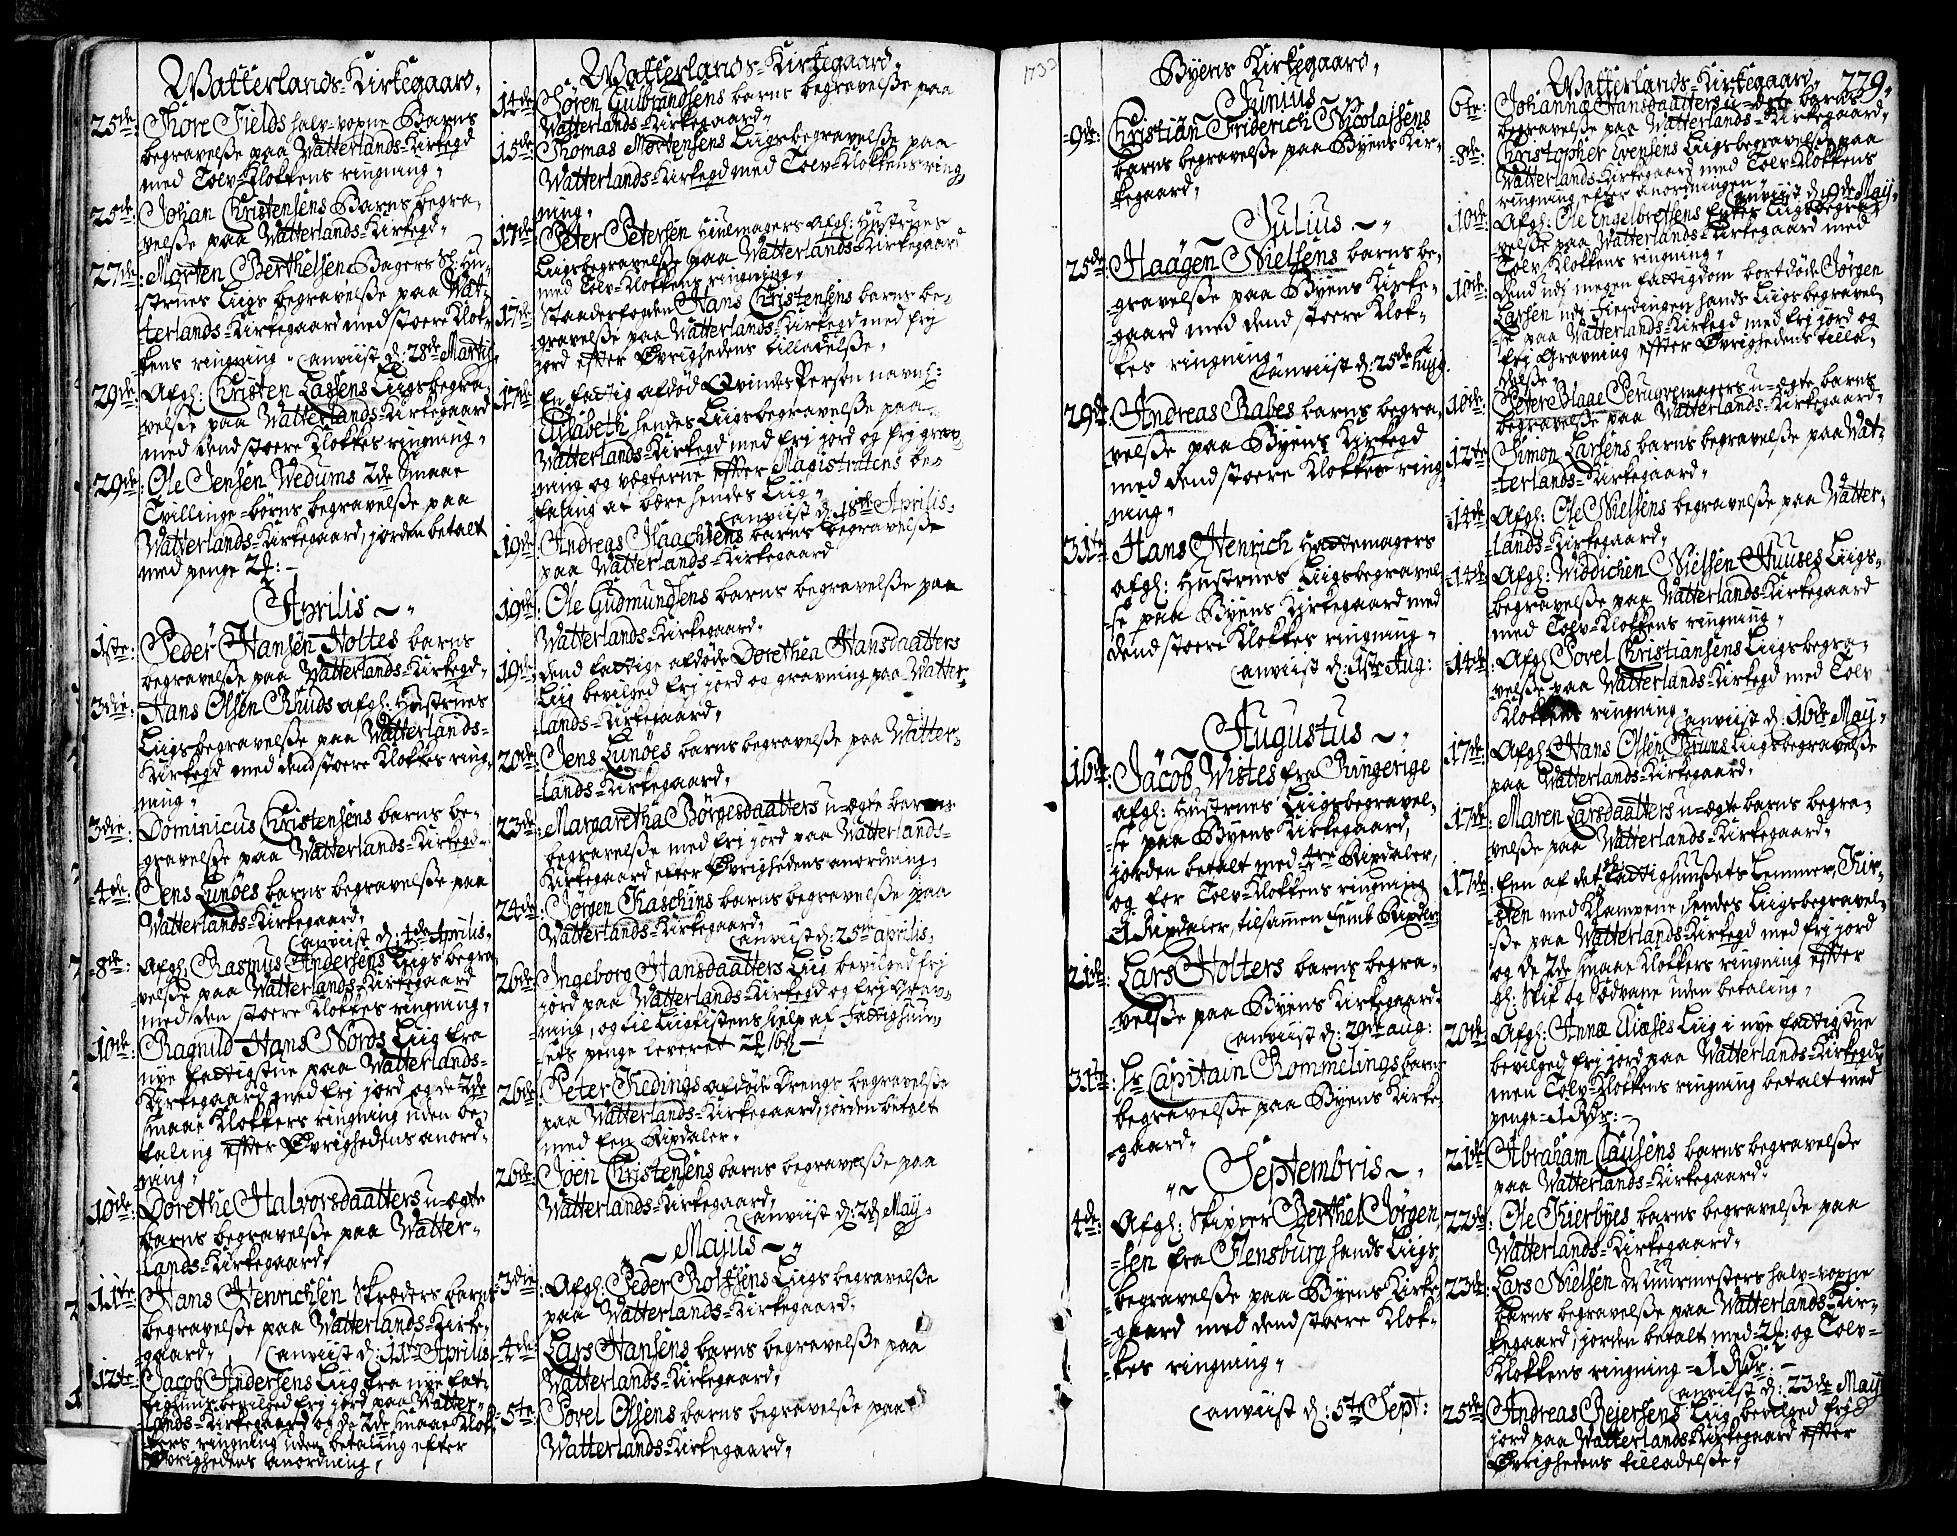 Watterlands-Kirkegaard,
25de: Thore Fields halv-voxne Barns
begravelße paa Watterlands-Kirkegd
med Tolv-Klokkens ringning,
25de: Johan Christensens Barns begra-
velße paa Watterlands-Kirkegd-
27de: Morten Berthelsen Bagers Sl: Hu-
strues Liigs begravelße paa Wat-
terlands-Kirkegaard med stoere Klok-
kens ringning, anviist d: 28de Martij
29de: Afgl: Christen Lassens Liigsbegra-
velße paa Watterlands-Kirkegaard
med dend stoere Klokkes ringning,
29de: Ole Jensen Wedums 2de smaae
Tvillinge-börns begravelße paa
Watterlands-Kirkegaard, jorden betalt
med penge
Aprilis
1ste: Peder Hansen Holtes barns
begravelße paa Watterlands-Kirkegd-
3die: Hans Olsen Rhuds afgl: Hustrues
Liigsbegravelße paa Watterlands-
Kirkegd med dend stoere Klokkes ring-
ning,
3die: Dominicus Christensens barns be-
gravelße paa Watterlands-Kirkegd-
4de: Jens Lunöes barns begravelße paa
Watterlands-Kirkegaard,
anviist d: 4de Aprilis,
8de: Afgl: Rasmus Andersens Liigs begra-
velße paa Watterlands-Kirkegaard
med den stoere Klokkes ringning,
10de: Ragnild Hans Nords Liig fra
nye fattigstue paa Watterlands-
Kirkegaard med frj jord og de 2de
smaae Klokkers ringning uden be-
taling effter Øvrighedens anord-
ning,
10de: Dorethe Halvorsdaatters u-ægte
barns begravelße paa Watter-
lands-Kirkegaard,
11te: Hans Henrichsen Skræders barns
begravelße paa Watterlands-Kirke-
gaard, anviist d: 11te Aprilis
12te: Jacob Andersens Liig fra nye fat-
tighuus bevilged frj jord paa Watter-
lands-Kirkegaard og de 2de smaae Klok-
kers ringning uden betaling efter
Øvrighedens anordning,
Watterlands-Kirkegaard,
14de: Sören Gulbrandsens barns begravelße paa
Watterlands-Kirkegaard,
15de: Thomas Mortensens Liigsbegravelße paa
Watterlands-Kirkegd med Tolv-Klokkens ring-
ning,
17de: Peter Petersen Hiulmagers Afgl: Hustrues
Liigsbegravelße paa Watterlands-Kirkegaard
med Tolv-Klokkens ringning,
17de: Stadsfogden Hans Christensens barns be-
gravelße paa Watterlands-Kirkegd med frj
jord effter Øvrighedens tilladelße,
17de: En fattig afdöd Qvindes Person navnl:
Elisabeth hendes Liigsbegravelße paa
Watterlands-Kirkegd med frj jord og frj grav-
ning og vægterne effter Magistratens be-
faling at bære hendes Liig,
anviist d: 18de Aprilis,
19de: Andreas Haachens barns begravelße
paa Watterlands-Kirkegaard
19de: Ole Gudmundsens barns begravelße paa
Watterlands-Kirkegaard,
19de: Dend fattige afdöde Dorethea Hansdaatters
Liig bevilged frj jord og gravning paa Watter-
lands-Kirkegaard,
20de: Jens Lunöes barns begravelße paa Watter-
lands-Kirkegaard,
23de: Margaretha Börgesdaatters u-ægte barns
begravelße med frj jord paa Watterlands-
Kirkegaard efter Øvrighedens anordning,
24de: Jörgen Raschins barns begravelße paa
Watterlands-Kirkegaard,
anviist d: 25de aprilis,
26de: Ingeborg Hansdaatters Liig bevilged frj
jord paa Watterlands-Kirkegd og frj Grav-
ning, og til Liigkistens hjelp af Fattighuu-
sets penge leveret
26de: Peter Kedings afdöde Drengs begravelße
paa Watterlands-Kirkegaard, jorden betalt
med Een Rixdaler,
26de: Joen Christensens barns begravelße paa
Watterlands-Kirkegaard,
anviist d: 2de May,
Majus
3die: Afgl: Peder Rolfsens Liigs begravelße
paa Watterlands-Kirkegaard,
4de: Lars Hansens barns begravelße paa
Watterlands-Kirkegaard,
5te: Povel Olsens barns begravelße paa
Watterlands-Kirkegaard,
1733
Byens Kirkegaard,
Junius
9de: Christian Friderich Nicolaisens
barns begravelße paa Byens Kir-
kegaard,
Julius
25de: Haagen Nielsens barns be-
gravelße paa Byens Kirke-
gaard med dend stoere Klok-
kes ringning,
anviist d: 25de hujg.
29de: Andreas Rabes barns begra-
velße paa Byens Kirkegd
med dend stoere Klokkes ring-
ning,
31te: Hans Henrich Hattemagers
afgl: Hustrues Liigsbegravel-
ße paa Byens Kirkegaard med
dend stoere Klokkes ringning,
anviist d: 1ste Aug:
Augustus
16de: Jacob Wistes fra Ringerige
afgl: Hustrues Liigsbegravel-
ße paa Byens Kirkegaard,
jorden betalt med 4re Rixdaler,
og for Tolv-Klokkens ringning
1 Rixdaler, tilsamen Femb Rixdlr
21de: Lars Holters barns begra-
velße paa Byens Kirkegaard.
anviist d: 29de aug:
31te: Hr Capitain Rommelings barns
begravelße paa Byens Kirke-
gaard,
Septembris
4de: Afgl: Skipper Berthel Jörgen-
sen fra Flensburg hands Liigs
begravelße paa Byens Kirke-
gaard med dend stoere Klok-
kes ringning,
anviist d: 5te Sept:
Watterlands-Kirkegaard, 229,
6te: Johanna Hansdaatters u-ægte barns
begravelße paa Watterlands-Kirkegaard,
8de: Christopher Evensens Liigsbegravelße paa
Watterlands-Kirkegaard med Tolv-Klokkens
ringning efter anordningen,
anviist d: 9de Maij,
10de: Afgl: Ole Engelbretsens Enkes Liigsbegra-
velße paa Watterlands-Kirkegaard med
Tolv-Klokkens ringning,
10de: Dend udj megen fattigdom bortdöde Jörgen
Larsen udj Fierdingen hands Liigsbegravel-
ße paa Watterlands-Kirkegd med frj jord og
frj Gravning effter Øvrighedens tilla-
delße,
10de: Peter Blaae Peruqvemagers u-ægte barns
begravelße paa Watterlands-Kirkegaard,
12te: Simon Larsens barns begravelße paa Wat-
terlands-Kirkegaard,
14de: Afgl: Ole Nielsens begravelße paa Watter-
lands-Kirkegaard,
14de: Afgl: Widdichen Nielsen Huuses Liigs-
begravelße paa Watterlands-Kirkegaard
med Tolv-Klokkens ringning,
14de: Afgl: Povel Christiansens Liigsbegra-
velße paa Watterlands-Kirkegd med Tolv
Klokkens ringning, anviist d: 16de May,
17de: Afgl: Hans Olsen Bruns Liigsbegravelße
paa Watterlands-Kirkegaard,
17de: Maren Larsdaatters u-ægte barns begra-
velße paa Watterlands-Kirkegaard,
17de: Een af det Fattighuußets Lemmer, Kir-
sten med Krampene hendes Liigsbegravel-
ße paa Watterlands-Kirkegd med frj jord
og de 2de smaae Klokkers ringning effter
gl: Skik og Sædvane uden betaling,
20de: Afgl: Annæ Liig i nye fattigstue
bevilged frj jord paa Watterlands-Kirkegd,
men Tolv-Klokkens ringning betalt med
penge 1 Rdr:
21de: Abraham Clausens barns begravelße
paa Watterlands-Kirkegaard,
22de: Ole Kierbyes barns begravelße paa
Watterlands-Kirkegaard,
23de: Lars Nielsen Muurmesters halv-voxne
barns begravelße paa Watterlands-Kir-
kegaard, jorden betalt med og Tolv-
Klokkens ringning 1 Rdr:
anviist d: 23de May
25de: Andreas Reiersens Liig bevilged frj
jord paa Watterlands-Kirkegaard effter
Øvrighedens tilladelße,